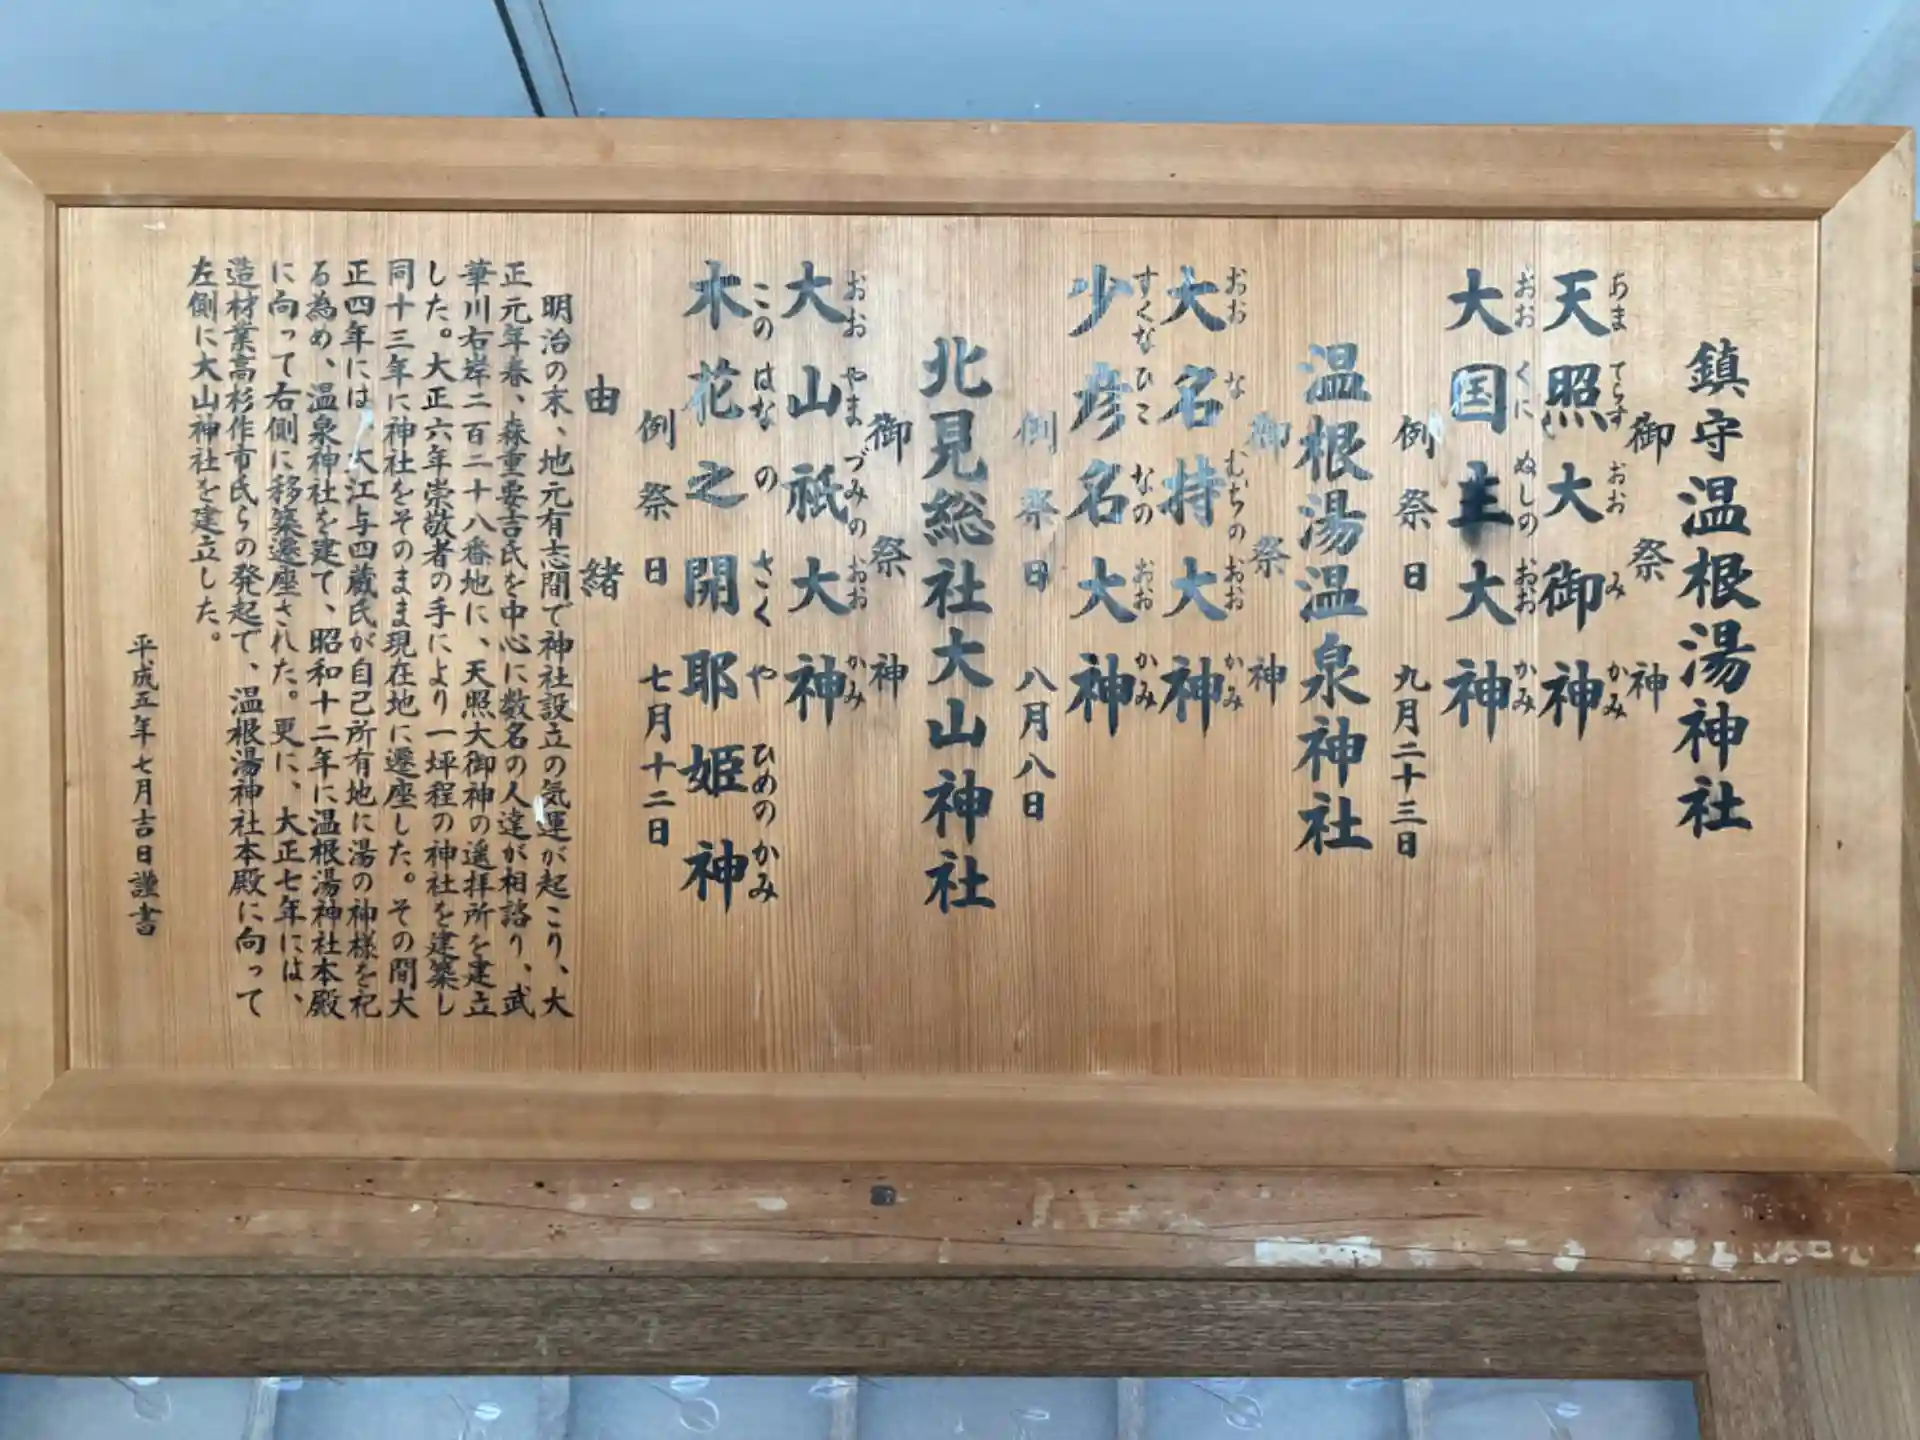 鎮守温根湯神社
御祭神
あまてらすおおみかみ
天照大御神
おおくにぬしのおおかみ
大国主大神
例祭日 九月二十三日
温根湯温泉神社
御祭神
おおなむちのおおかみ
大名持大神
すくなひこなのおおかみ
少彦名大神
例祭日 八月八日
北見総社大山神社
御祭神
おおやまづみのおおかみ
大山祇大神
このはなのさくやひめのかみ
木花之開耶姫神
例祭日 七月十二日
由緒
明治の末、地元有志間で神社設立の気運が起こり、大
正元年春、森重要吉氏を中心に数名の人達が相諮り、武
華川右岸二百二十八番地に、天照大御神の遥拝所を建立
した。大正六年崇敬者の手により一坪程の神社を建築し
同十三年に神社をそのまま現在地に遷座した。その間大
正四年には、大江与四蔵氏が自己所有地に湯の神様を祀
る為め、温泉神社を建て、昭和十二年に温根湯神社本殿
に向って右側に移築遷座された。更に、大正七年には、
造材業高杉作市氏らの発起で、温根湯神社本殿に向って
左側に大山神社を建立した。
平成五年七月吉日謹書